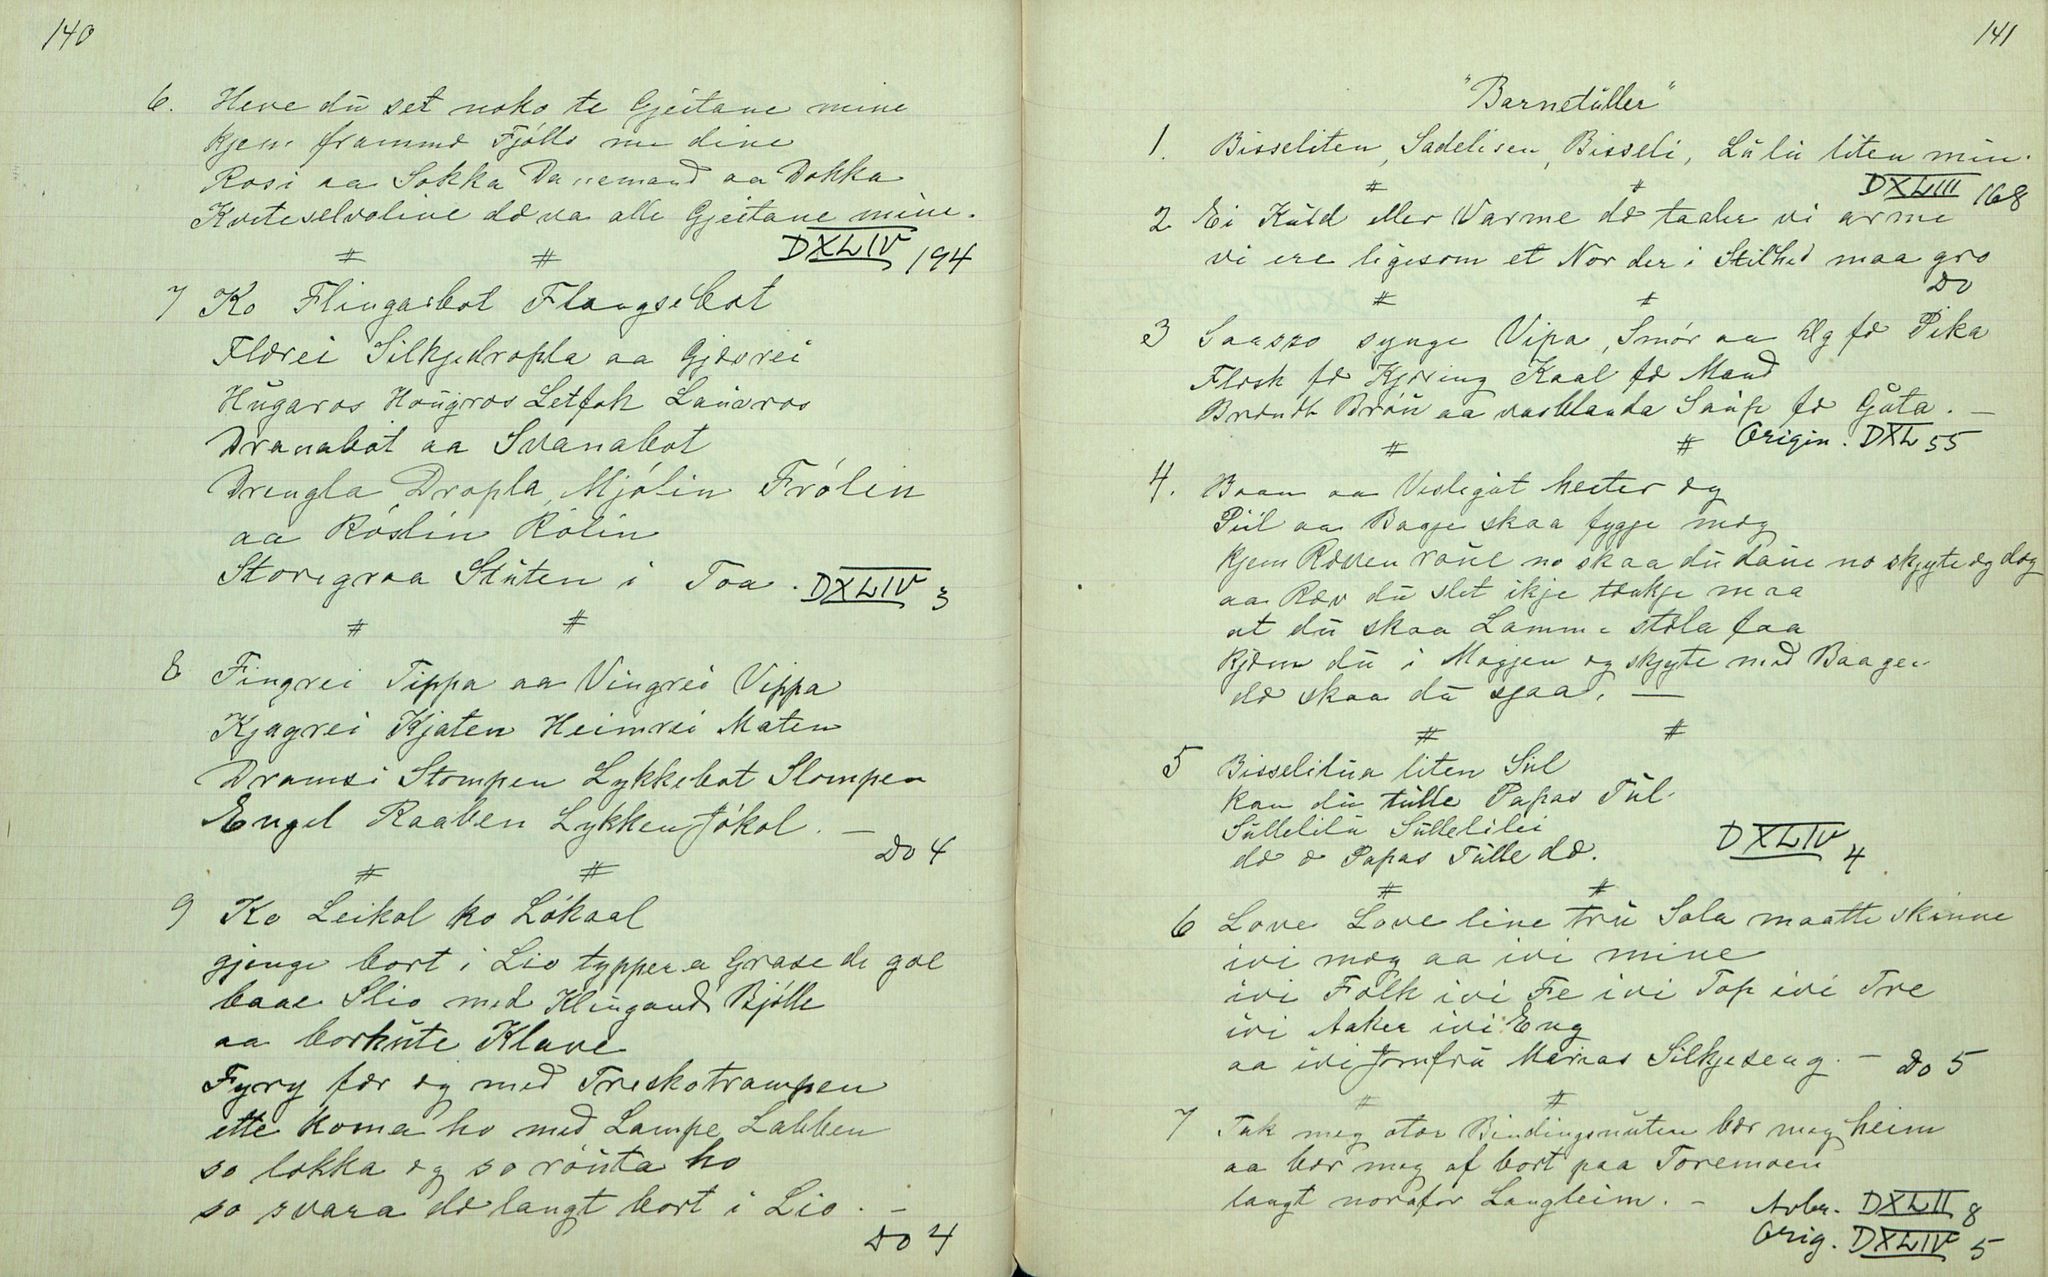 140
6. Heve du set noko te Gjeitane mine
kjem frammed Fjólls me dine
Rosi aa Sokka Danemand aa Dokka
Kveteselvoline dæ va alle Gjeitane mine.
DXLIV 194
# #
7 Ko Flingasbot Flaugsebot
Flærei Silkjedropla aa Gjævrei
Hugaros Hougros Letfok Lauvros
Dranabot aa Svanabot
Drengla Dropla, Mjólin Frólin
aa Róslin Rólin
Storegraa Stuten i Toa. DXLIV 3
# #
8 Fingrei Tippa aa Vingrei Vippa
Kjagrei Kjaten Heimrei Maten
Dramsi Stompen Lykkebot Slompen
Engel Raaben Lykken Jókol. —
Do 4
# #
9 Ko Leikol ko Lókaal
gjenge bort i Lio typper a Grase de gol
baae Slio med Klingand Bjólle
aa borkute Klave
Fyry fær eg med Treskotrampen
ette koma ho med Lampe Labben
so lokka eg so róuta ho
so svara dæ langt bort i Lio. —
Do 4
141
"Barnetuller"
1. Bisseliten, Sadelisen, Bisseli, Lulu liten min.
# # DXLIII 168
2 Ei Kuld eller Varme dæ taaler vi arme
vi ere ligesom et Nor der i Stilhed maa gro
# # Do
3 Saasso synge Vipa, Smór aa Æg fæ Pika
Flæsk fæ Kjæring Kaal fæ Mand
Brændt Bróu aa vasblanda Saup fæ Guta. —
# # Origin. DXL 55
4. Baan aa Veslegut heeter eg
Piil aa Bogje skaa fygje meg
kjem Ræven raue no skaa du daue no skjyte eg deg
aa Ræv du slet ikje tænkje maa
at du skaa Lamme stela faa
kjæm du i Magjen eg skjyte med Baagen
dæ skaa du sjaa. —
# #
5 Bisselilua liten Sul
kan du tulle Papas Tul
Sullelilu Sullelilei
dæ æ Papas Tulle dæ. DXLIV 4
# #
6 Love Love line tru Sola maatte skinne
ivi meg aa ivi mine
ivi Folk ivi Fe ivi Top ivi Tre
ivi Aaker ivi Eng
aa ivi Jomfru Marias Silkjeseng. — Do 5
# #
7 Tak meg otor Bindingsnuten bær meg heim
aa bær meg af bort paa Toremoen
langt norafor Laugleim. —
Avbr. DXLII 8
Orig. DXLIV 5